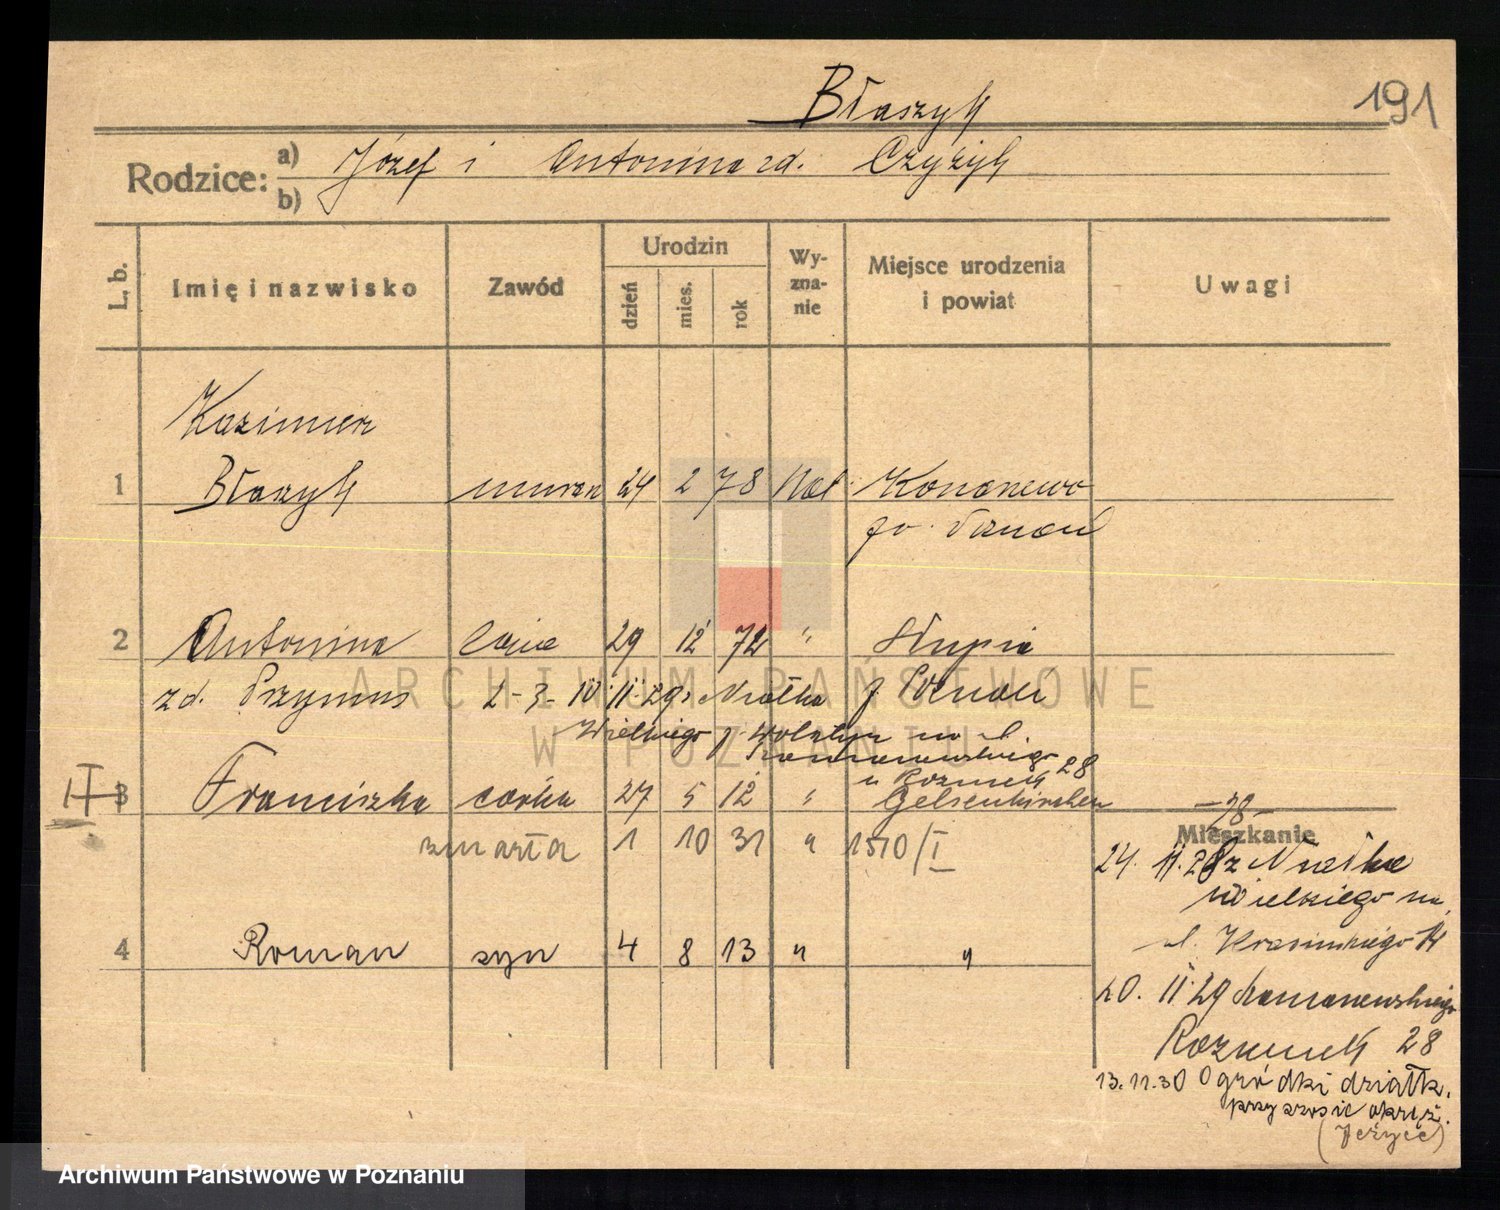 Błaszyk
191
Rodzice: a) Józef i Antonina zd. Czyżyk
b)
L. b.
Imię i nazwisko
Zawód
Urodzin
dzień
mies.
rok
Wy-
zna-
nie
Miejsce urodzenia
i powiat
Uwagi
Kazimierz
1 Błaszyk murarz 24 2 78 kat. Konarzewo
2 Antonina żona 29 12 72 " Słupia
zd. Przymus 2-3- IV 11.29 z Miałka p Poznań
Wielkiego p. Wolsztyn na ul.
28
3 Franciszka córka 27 5 12 " Gelsenkirchen
zmarła 1 10 31 " 1510/I
-28-
Mieszkanie
24. 11. 28 z
Wielkiego na
ul. Krasińskiego 14
4 Roman syn 4 8 13 " "
20. II 29
28
13.11.30 Ogródki działk.
przy szosie okręż.
(Jeżyce)
ARCHIWUM PAŃSTWOWE
W POZNANIU
Archiwum Państwowe w Poznaniu